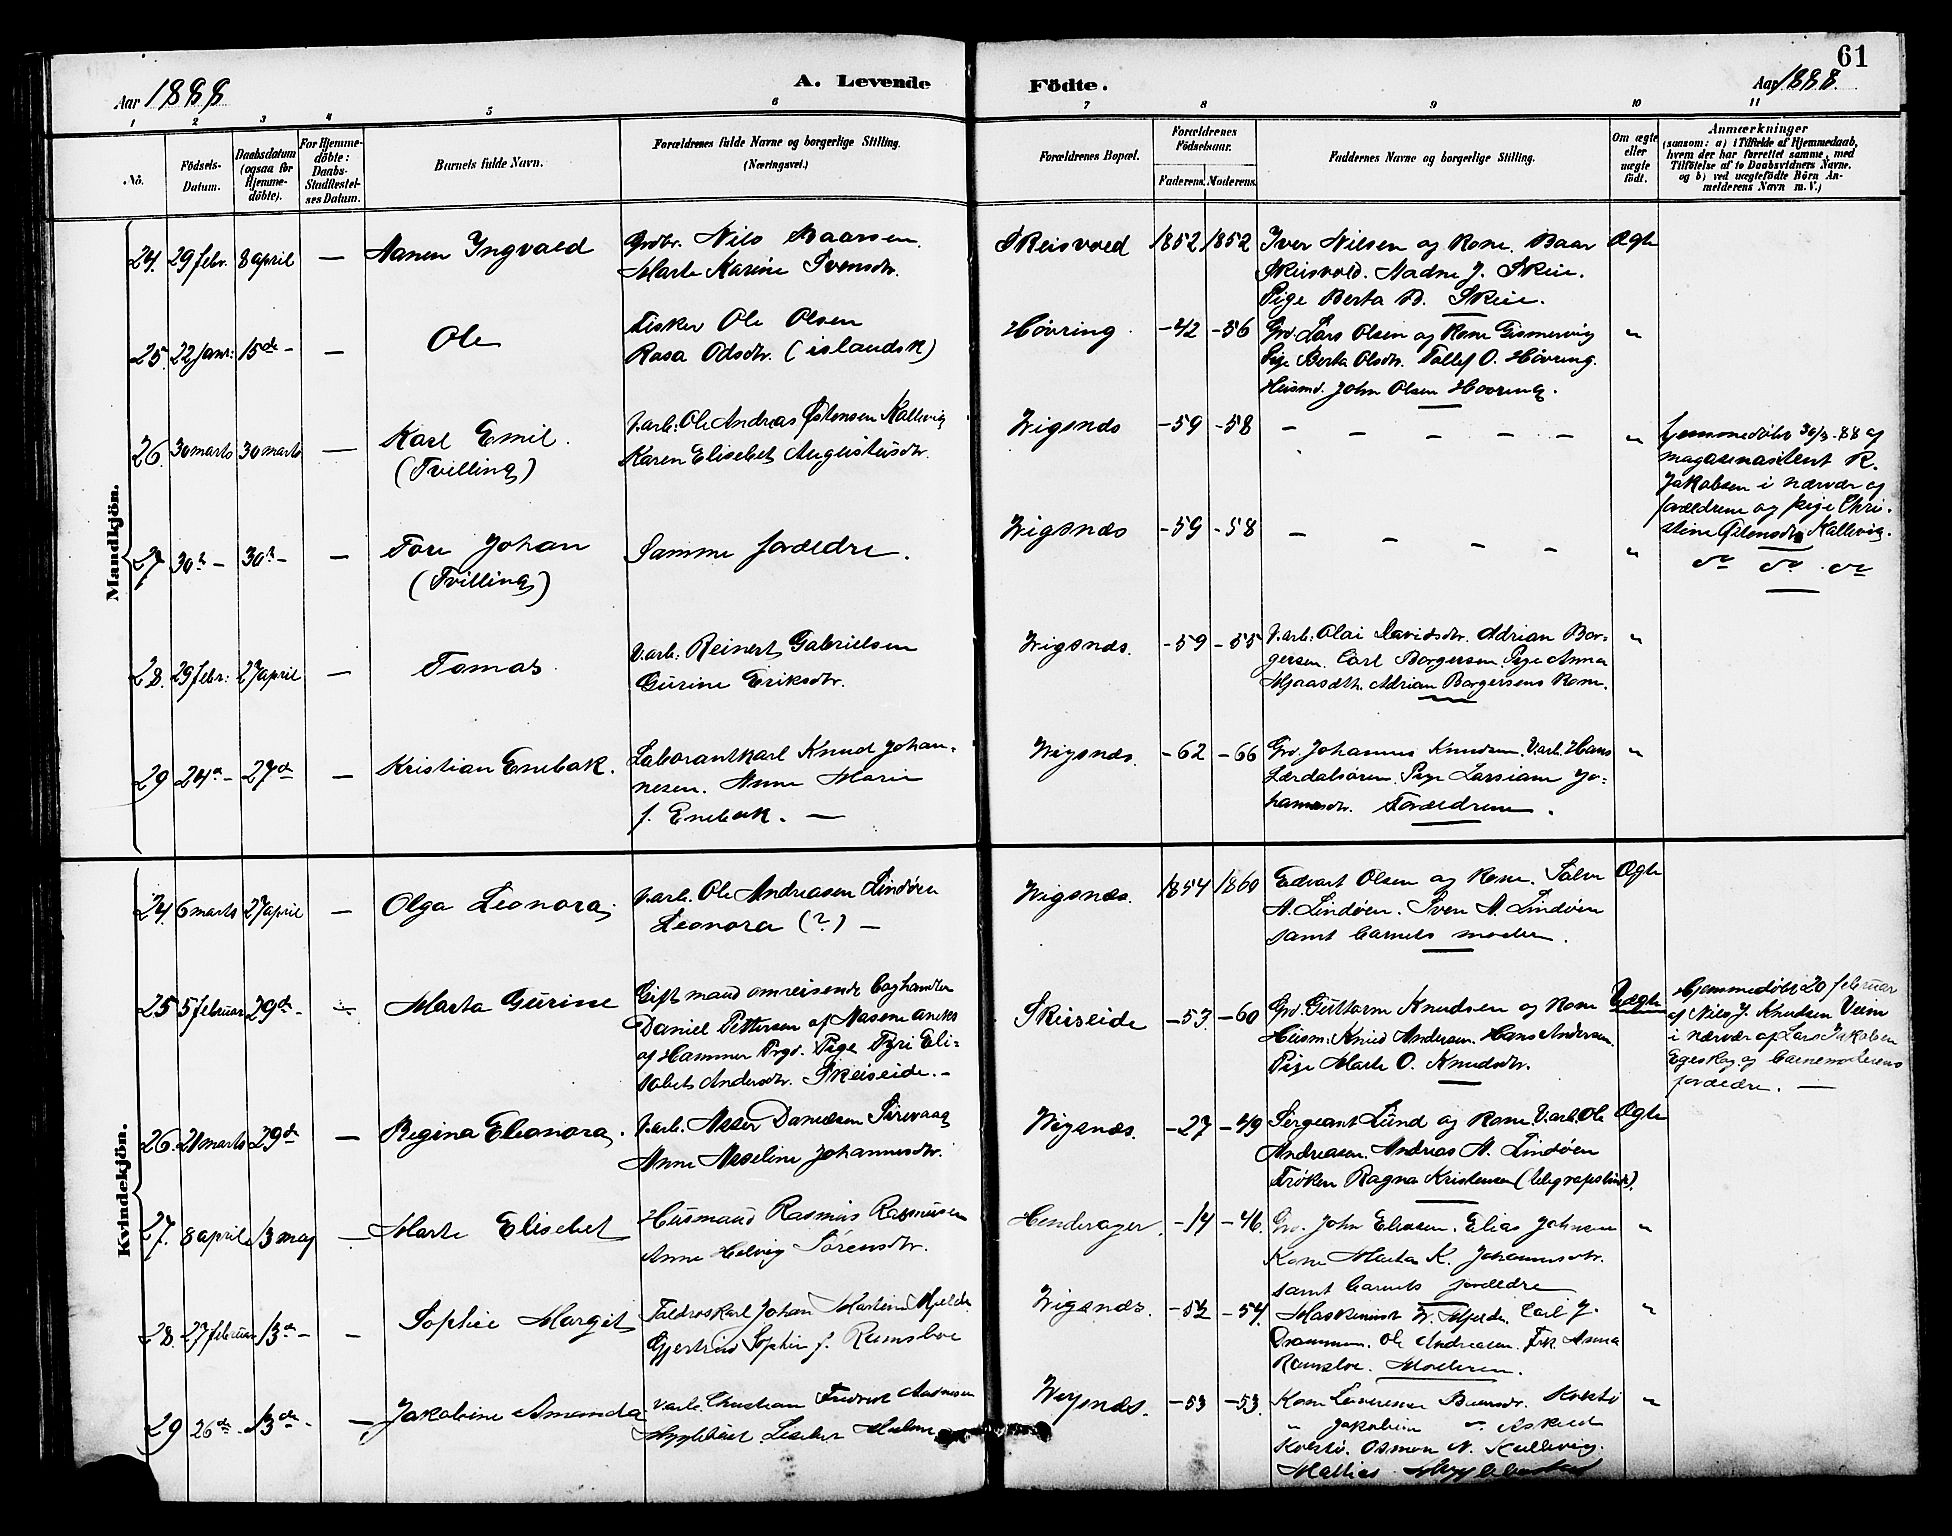 61
Aar 1888
A. Levende
Födte.
Aar 1888.
1 2 3 4 5 6 7 8 9 10 11
No.
Födsels-
Datum.
Daabsdatum
(ogsaa for
Hjemme-
döbte).
For Hjemme-
döbte:
Daabs-
Stadfæstel-
ses Datum.
Barnets fulde Navn.
Forældrenes fulde Navne og borgerlige Stilling.
(Næringsvei.)
Forældrenes Bopæl.
Forældrenes
Födselsaar.
Faderens. Moderens.
Faddernes Navne og borgerlige Stilling.
Om ægte
eller
uægte
födt.
Anmærkninger
(saasom: a) i Tilfælde af Hjemmedaab,
hvem der har forrettet samme, med
Tilföielse af to Daabsvidners Navne.
og b) ved uægtefödte Börn An-
melderens Navn m. V.)
Mandkjön.
24. 29 febr. 8 april — Aanen Ingvald
Grdbr. Nils Baarsen.
Marte Karine Svensdtr.
Skeisvold 1852 1852
Iver Nilsen og Kone. Baar
Skeisvold. Aadne J. Skeie.
Pige Berta B. Skeie.
Ægte
25. 22 janr: 15de — — Ole
Fisker Ole Olsen
Rasa Odsdtr. (islandsk)
Høvring -42 -56
Grd. Lars Olsen og Kone Gismervig
Pige Berta Olsdtr. Tollef O. Høvring.
Husmd. John Olsen Hovring.
"
26. 30 marts 30 marts — Karl Emil.
(Tvilling)
Varb: Ole Andreas Østensen Kallevig
Karen Elisebet Augustusdtr.
Vigsnæs -59 -58 — — — — —
"
hjemmedøbt 30/3-88 af
magasinasistent R.
Jakobsen i nærvær af
forældrene og pige Chri-
stine Østensdtr Kallevig.
27 30te — 30te — — Tore Johan
(Tvilling)
Samme forældre.
Vigsnæs -59 -58 — — — —
"
do do do
28. 29 febr: 27 april — Tomas
Varb: Reinert Gabrielsen
Gurine Eriksdtr.
Vigsnæs. -59 -55
Varb: Olai Davidsdtr. Adrian Bor-
gersen. Carl Borgersen. Pige Anna
Adrian Borgersens Kone.
"
29 24de — 27de — Kristian Enebak.
Laborantkarl Knud Johan-
nesen. Anne Marie
f. Enebak. —
Vigsnæs. -62 -66
Grd. Johannes Knudsen. Varb. Hans
Lærdalsøren. Pige Larsiane Jo-
hannesdtr. Forældrene.
"
Kvindekjön.
24. 6 marts 27 april — Olga Leonora.
Varb. Ole Andreasen Lindøen
Leonora (?) —
Vigsnæs. 1854 1860
Edvart Olsen og Kone. Salve
A. Lindøen. Sven A. Lindøen
samt barnets moder.
Ægte
25 5 februar 29de — — Marta Gurine
Gift mand omreisende boghandler
Daniel Pettersen af Aasene aneks
af Hammer Prgd. Pige Tyri Eli-
sabet Andersdtr. Skeiseide. —
Skeiseide -53 -60
Grd. Guttorm Knudsen og Kone
Husm: Knud Andersen. Hans Andersen
Pige Marte O. Knudsdtr.
Uægte
Hjemmedøbt 20 februar
af Nils J. Knudsen Veim
i nærvær af Lars Jakobsen
Egeskog og barnemoderens
forældre. —
26. 21 marts 29de — Regina Eleonora.
Varb. Asser Danielsen Sirevaag
Anne Asseline Johannesdtr.
Vigsnæs. -27 -49
Sergeant Lund og Kone. Varb. Ole
Andreasen. Andreas A. Lindøen
Frøken Ragna Kristensen (telegrafistinde).
Ægte
27. 8 april 13 maj — Marte Elisebet
Husmand Rasmus Rasmusen
Anne Helvig Sørensdtr.
Henderager -14 -46
Grd. John Eliasen. Elias Johnsen
Kone Marta K. Johannesdtr.
samt barnets forældre
"
28. 27 februar 13de — — Sophie Margit
Faldroskarl Johan Martin Mjelde
Gjertrud Sophie f. Ramsloe
Vigsnæs. -52 -54.
Maskinist W. Mjelde. Carl J.
Drammen. Ole Andreasen. Frk Anna
Ramsloe. Moderen.
"
29 26de — 13de — — Jakobine Amanda
Varb. Christian Fredrik
Vigsnæs. -53 -53.
Kone
" Jakobine "
Kolstø. Osmon N. Kallevig.
Mathias
"